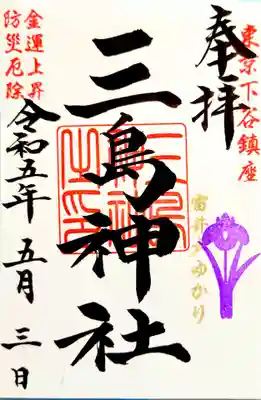 東京下谷鎮座
奉拝
雷井戸ゆかり
三島神社
三島神社之印
金運上昇
防災厄除
令和五年 五月 三日